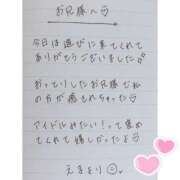 お兄様へ♡
今日は遊びに来てくれて
ありがとうございました
おっとりしたお兄様で私
の方が癒もれちゃった♡
アイドルみたい!って褒め
てくれて嬉しかったよ
えまより